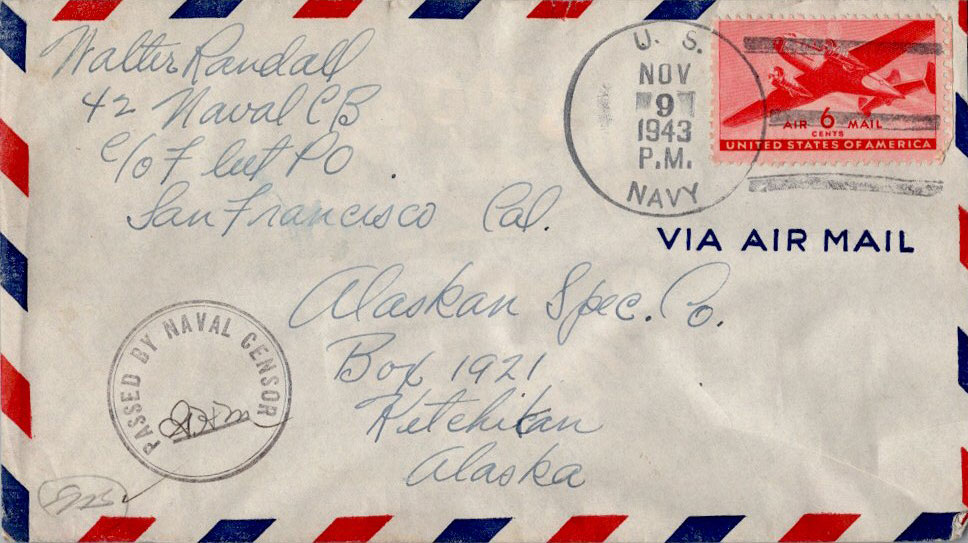 Walter Randall
42 Naval CB
c/o Fleet PO
San Francisco Cal.
U. S.
NOV
9
1943
P.M.
NAVY
AIR 6 MAIL
CENTS
UNITED STATES OF AMERICA
VIA AIR MAIL
Alaskan Spec. Co.
Box 1921
Ketchikan
Alaska
PASSED BY NAVAL CENSOR